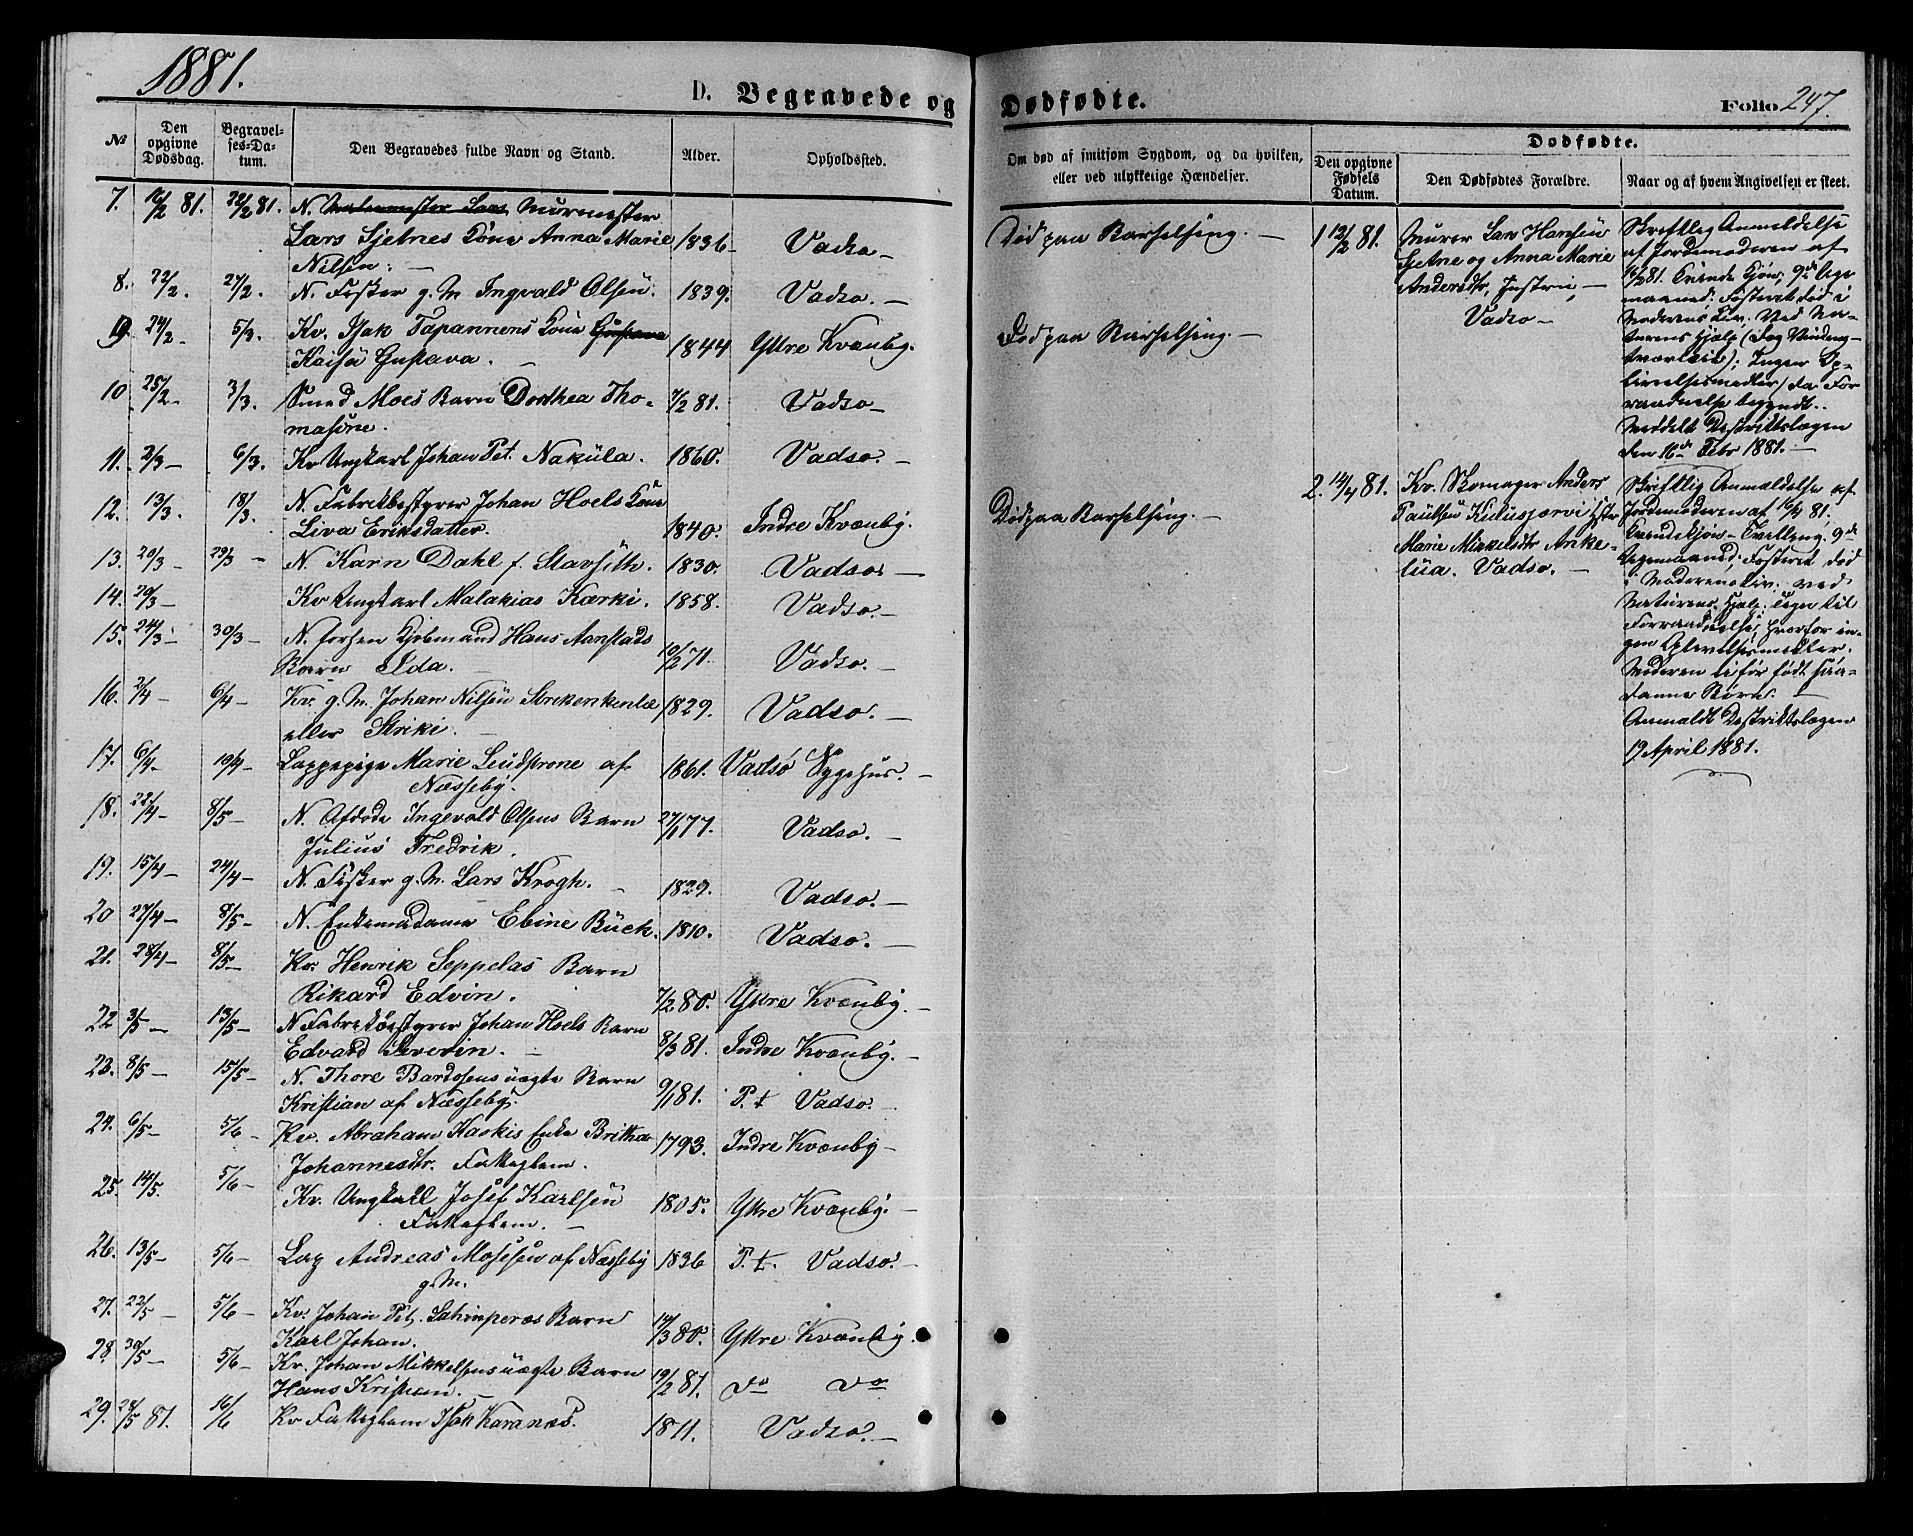 1881.
D. Begravede og Dødfødte.
Folio 247.
№
Den opgivne Dødsdag.
Begravel-ses-Da-tum.
Den Begravedes fulde Navn og Stand.
Alder.
Opholdssted.
Om død af smitsom Sygdom, og da hvilken, eller ved ulykkelige Hændelser.
Dødfødte.
Den opgivne Fødsels Datum.
Den Dødfødtes Forældre.
Naar og af hvem Angivelsen er skeet.
7. 16/2 81. 22/2 81. N. Murmester
Lars Sjetnes Kone Anna Marie 1836 Vadsø – Død paa Barselseng. –
Nilsen. –
8. 22/2. 27/2. N. Fisker g. M. Ingvald Olsen. 1839. Vadsø. –
9. 24/2 – 5/3. Kv. Isak Tapannens Kone Gustava
Kaisa Gustava. – 1844 Ytre Kvænby. Død paa Barselseng. –
10 25/2 – 3/3. Smed Moes Barn Dorthea Tho-
masine. 7/2 81. Vadsø –
11. 2/3 – 6/3. Kv Ungkarl Johan Pet. Nakula. 1860. Vadsø. –
12. 13/3. 18/3. N. Fabrikbestyrer Johan Hoels Kone
Liva Eriksdatter. 1840. Indre Kvænby. Død paa Barselseng. –
13. 20/3 – 29/3 – N. Karn Dahl f. Stavseth. 1830. Vadsø –
14. 20/3 – Kv Ungkarl Malakias Kærki. 1858. Vadsø. –
15. 24/3 – 30/3 – N. forhen Kjøbmand Hans Aanstads
Barn Ida. – 10/2 71. Vadsø. –
16. 2/4 – 6/4 – Kv. g. M. Johan Nilsen
eller Striki. – 1829. Vadsø. –
17. 6/4 – 10/4 – Lappepige Marie af
Næsseby. 1861. Vadsø Sygehus. –
18. 22/4 – 8/5 – N. Afdøde Ingevald Olsens Barn
Julius Fredrik. 27/1 77. Vadsø. –
19. 15/4 – 24/4 – N. Fisker g. M. Lars Krogh. – 1829. Vadsø. –
20 27/4 – 8/5 – N. Enkemadame Ebine Buck. 1810. Vadsø. –
21. 28/4 – 8/5 – Kv. Henrik Seppelas Barn
Rikard Edvin. 7/2 80. Ytre Kvænby. –
22 3/5 – 13/5 – N Fabrikbestyrer Johan Hoels Barn
Edvard Severin. – 8/3 81. Indre Kvænby. –
23. 8/5 – 15/5 – N. Thore Bardosens uægte Barn
Kristian af Næsseby. 9/1 81. P. t Vadsø. –
24. 6/5 – 5/6 – Kv. Abraham Karkis Enke Britha
Johannesdtr. Fattiglem. 1793. Indre Kvænby –
25. 14/5. 5/6 – Kv. Ungkarl Josef Karlsen
Fattiglem. – 1805. Ytre Kvænby. –
26. 13/5 – 5/6 – Lap Andreas Mosesen af Næsseby 1836 P. t. Vadsø. –
g. M.
27. 22/5 – 5/6 – Kv. Johan Pet. Barn
Karl Johan. 14/3 80. Ytre Kvænby.
28. 30/5 – 5/6 – Kv. Johan Mikkelsens uægte Barn
Hans Kristian. – 19/2 81. do do
29. 28/5 81. 16/6 Kv Fattiglem Isak Karanæs. 1811. Vadsø. –
1 12/2 81. Murer Lars Hansen
Sjetne og Anna Marie
Andersdtr, Hustru, –
Vadsø –
Skriftlig Anmeldelse
af Jordemoderen af
16/2 81. Qvinde Kjøn; 9de Uge-
maaned. Fosteret død i
Moderens Liv. Ved Na-
turens Hjælp
Ingen Op-
livelsesmidler, da For-
raadnelse begyndt.
Meddelt Destriktslægen
den 16de Febr 1881. –
2. 14/4 81. Kv. Skomager Anders
Paulsen
Marie Mikkelsdtr Anke-
lua. Vadsø. –
Skriftlig Anmeldelse af
Jordemoderen af 16/4 81;
Qvindekjøn – Tvilling. 9de
Ugemaaned; Fosteret død
i Moderens Liv. ved
Naturens Hjelp. Tegn til
Forraadnelse; hvorfor in-
gen Oplivelsesmidler.
Moderen ei før født saa-
danne Børn. –
Anmeldt Destriktslægen
19 April 1881.